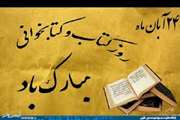 ۲۴ آبان ماه
روز کتاب و کتابخوانی
مبارک باد